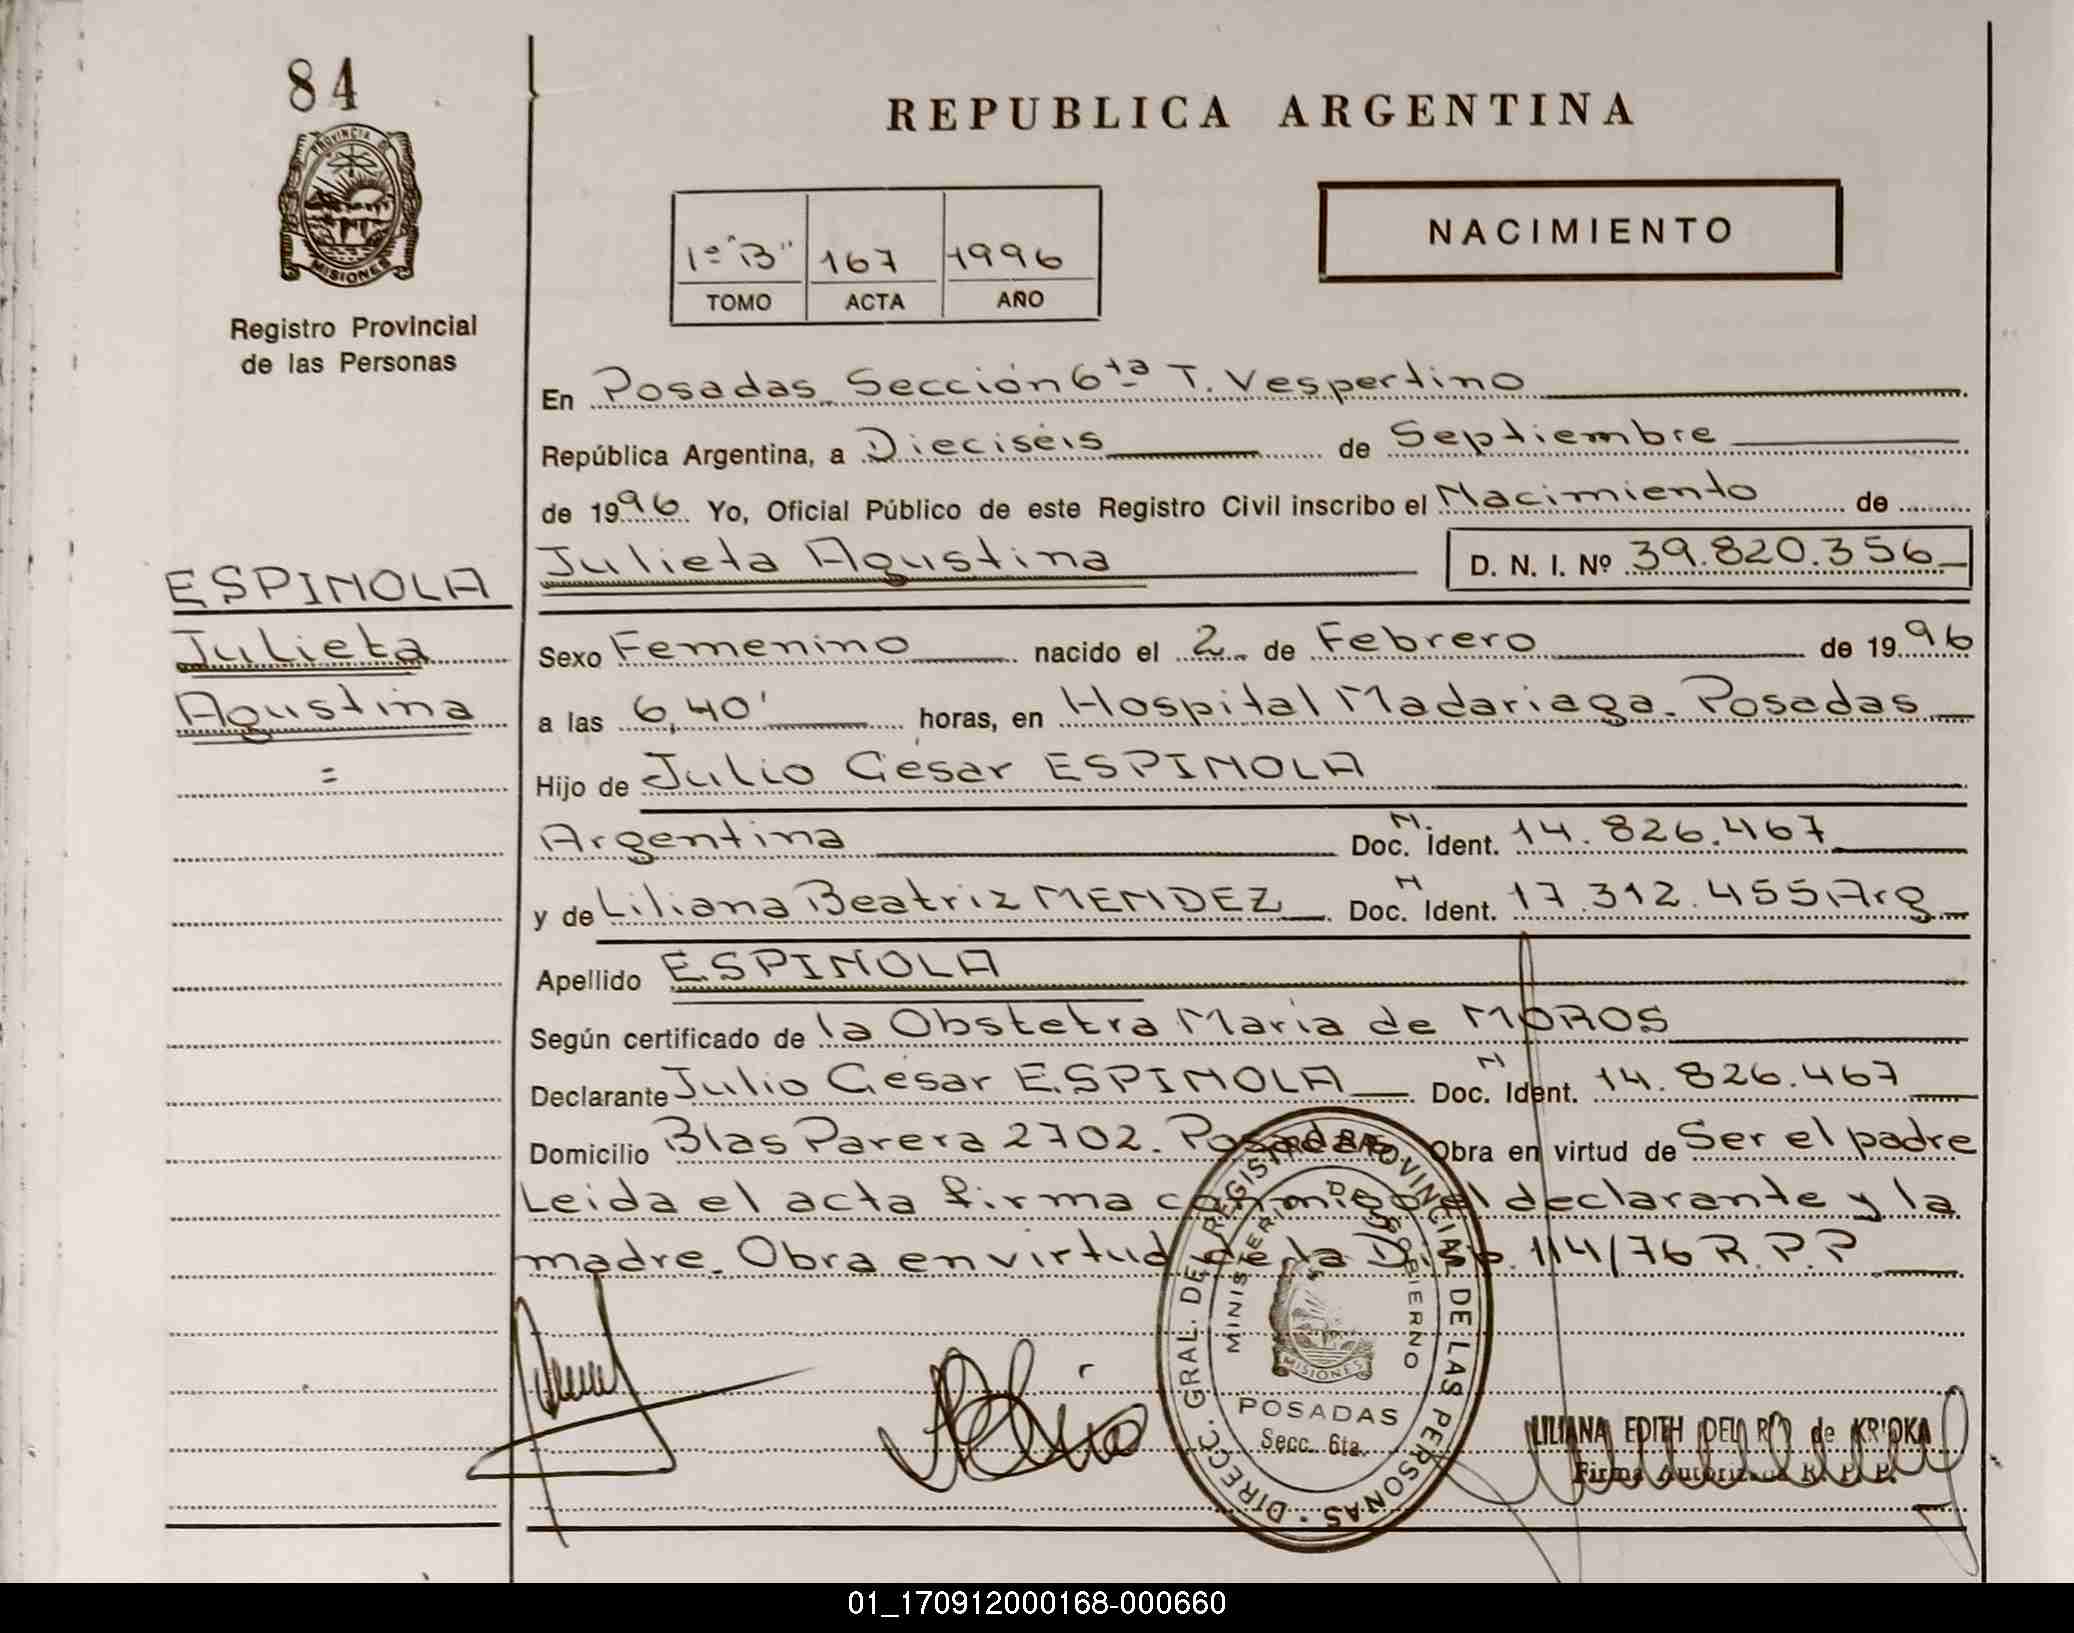 84
PROVINCIA DE
MISIONES
Registro Provincial
de las Personas
REPUBLICA ARGENTINA
NACIMIENTO
1º "B" 167 1996
TOMO ACTA AÑO
En Posadas Sección 6ta T. Vespertino
República Argentina, a Dieciséis de Septiembre
de 1996 Yo, Oficial Público de este Registro Civil inscribo el Nacimiento de
Julieta Agustina D. N. I. Nº 39.820.356
ESPINOLA
Julieta
Agustina
=
Sexo Femenino nacido el 2 de Febrero de 1996
a las 6,40' horas, en Hospital Madariaga. Posadas
Hijo de Julio César ESPINOLA
Argentina Doc. N. Ident. 14.826.467
y de Liliana Beatriz MENDEZ Doc. N Ident. 17.312.455 Arg
Apellido ESPINOLA
Según certificado de la Obstetra Maria de MOROS
Declarante Julio César ESPINOLA Doc. N Ident. 14.826.467
Domicilio Blas Parera 2702. Posadas Obra en virtud de Ser el padre
Leida el acta firma conmigo el declarante y la
madre. Obra en virtud de la Disp. 114/76 R.P.P
DIRECC. GRAL. DEL REGISTRO PROVINCIAL DE LAS PERSONAS
MINISTERIO DE GOBIERNO
MISIONES
POSADAS
Secc. 6ta.
LILIANA EDITH DEL RÍO de
Firma Autorizada R. P. P.
01_170912000168-000660